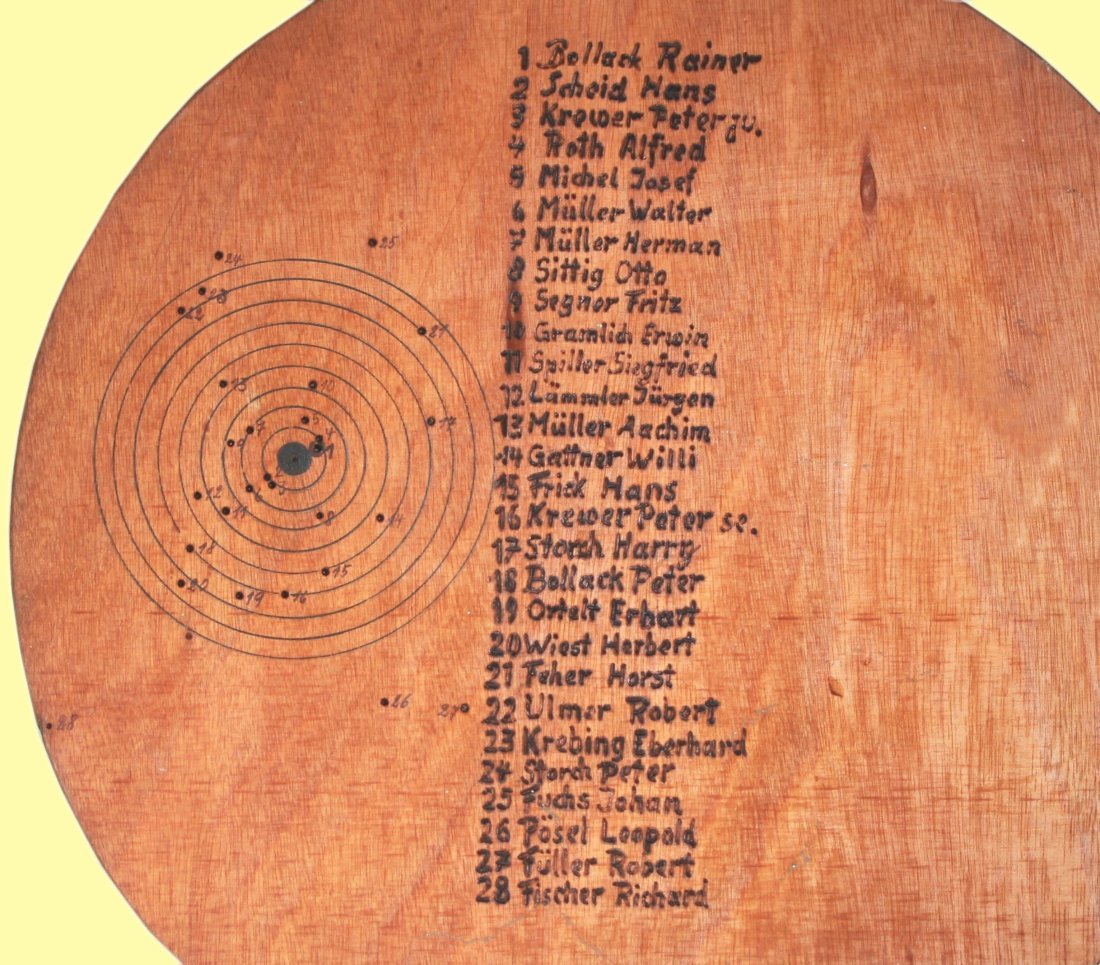 1 Bollack Rainer
2 Scheid Hans
3 Krewer Peter ju.
4 Roth Alfred
5 Michel Josef
6 Müller Walter
7 Müller Herman
8 Sittig Otto
9 Segner Fritz
10 Gramlich Erwin
11 Spiller Siegfried
12 Lämmler Jürgen
13 Müller Aachim
14 Gattner Willi
15 Frick Hans
16 Krewer Peter se.
17 Storch Harry
18 Bollack Peter
19 Ortelt Erhart
20 Wiest Herbert
21 Feher Horst
22 Ulmer Robert
23 Krebing Eberhard
24 Storch Peter
25 Fuchs Johan
26 Pösel Leopold
27 Füller Robert
28 Fischer Richard
25
24
23
22
21
13
10
7
17
9
1
6
12
11
8
14
18
15
20
19
16
26
27
28